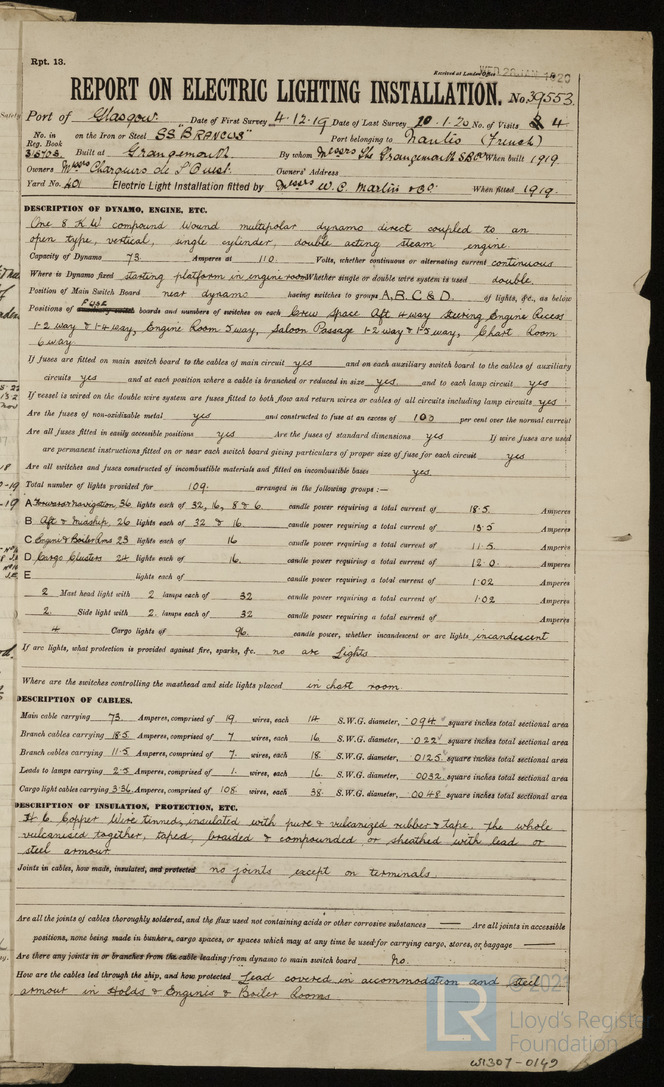 Rpt. 13.
Received at London Office WED 28 JAN 1920
REPORT ON ELECTRIC LIGHTING INSTALLATION. No. 39553.
Port of Glasgow Date of First Survey 4.12.19 Date of Last Survey 20.1.20 No. of Visits 4
No. in Reg. Book on the Iron or Steel SS "BRANCUS" Port belonging to Nantes (French)
Built at Grangemouth By whom Messrs The Grangemouth S.B. Co When built 1919.
Owners Messrs Chargeurs de L'Ouest. Owners' Address
Yard No. 401 Electric Light Installation fitted by Messrs W. C. Martin & Co. When fitted 1919.
DESCRIPTION OF DYNAMO, ENGINE, ETC.
One 8 K.W compound wound multipolar dynamo direct coupled to an
open type, vertical, single cylinder, double acting steam engine.
Capacity of Dynamo 73. Amperes at 110. Volts, whether continuous or alternating current continuous
Where is Dynamo fixed starting platform in engine room Whether single or double wire system is used double.
Position of Main Switch Board near dynamo having switches to groups A, B, C & D. of lights, &c., as below
Positions of auxiliary switch FUSE boards and numbers of switches on each Crew Space Aft 4 way Steering Engine Recess
1-2 way & 1-4 way, Engine Room 5 way, Saloon Passage 1-2 way & 1-5 way, Chart Room
6 way
If fuses are fitted on main switch board to the cables of main circuit yes and on each auxiliary switch board to the cables of auxiliary
circuits yes and at each position where a cable is branched or reduced in size yes and to each lamp circuit yes
If vessel is wired on the double wire system are fuses fitted to both flow and return wires or cables of all circuits including lamp circuits yes
Are the fuses of non-oxidisable metal yes and constructed to fuse at an excess of 100 per cent over the normal current
Are all fuses fitted in easily accessible positions yes Are the fuses of standard dimensions yes If wire fuses are used
are permanent instructions fitted on or near each switch board giving particulars of proper size of fuse for each circuit yes
Are all switches and fuses constructed of incombustible materials and fitted on incombustible bases yes.
Total number of lights provided for 109. arranged in the following groups :—
A Forward & Navigation 36 lights each of 32, 16, 8 & 6. candle power requiring a total current of 18.5 Amperes
B Aft & Midship 26 lights each of 32 & 16. candle power requiring a total current of 13.5 Amperes
C Engine & Boiler Rms 23 lights each of 16 candle power requiring a total current of 11.5 Amperes
D Cargo Clusters 24 lights each of 16. candle power requiring a total current of 12.0 Amperes
E lights each of candle power requiring a total current of 1.02 Amperes
2 Mast head light with 2 lamps each of 32 candle power requiring a total current of 1.02 Amperes
2. Side light with 2. lamps each of 32 candle power requiring a total current of Amperes
4 Cargo lights of 96. candle power, whether incandescent or arc lights incandescent
If arc lights, what protection is provided against fire, sparks, &c. no arc lights
Where are the switches controlling the masthead and side lights placed in chart room.
DESCRIPTION OF CABLES.
Main cable carrying 73. Amperes, comprised of 19. wires, each 14 S.W.G. diameter, .094 square inches total sectional area
Branch cables carrying 18.5 Amperes, comprised of 7 wires, each 16. S.W.G. diameter, .022 square inches total sectional area
Branch cables carrying 11.5 Amperes, comprised of 7. wires, each 18. S.W.G. diameter, .0125 square inches total sectional area
Leads to lamps carrying 2.5 Amperes, comprised of 1. wires, each 16. S.W.G. diameter, .0032 square inches total sectional area
Cargo light cables carrying 3.36 Amperes, comprised of 108. wires, each 38. S.W.G. diameter, .0048 square inches total sectional area
DESCRIPTION OF INSULATION, PROTECTION, ETC.
H. C. Copper Wire tinned, insulated with pure & vulcanized rubber & tape. The whole
vulcanised together, taped, braided & compounded or sheathed with lead or
steel armour
Joints in cables, how made, insulated, and protected no joints except on terminals.
Are all the joints of cables thoroughly soldered, and the flux used not containing acids or other corrosive substances — Are all joints in accessible
positions, none being made in bunkers, cargo spaces, or spaces which may at any time be used for carrying cargo, stores, or baggage —
Are there any joints in or branches from the cable leading from dynamo to main switch board no.
How are the cables led through the ship, and how protected Lead covered in accommodation and steel
armour in Holds & Engines & Boiler Rooms
© 2021
LR
Lloyd's Register
Foundation
W1307-0149